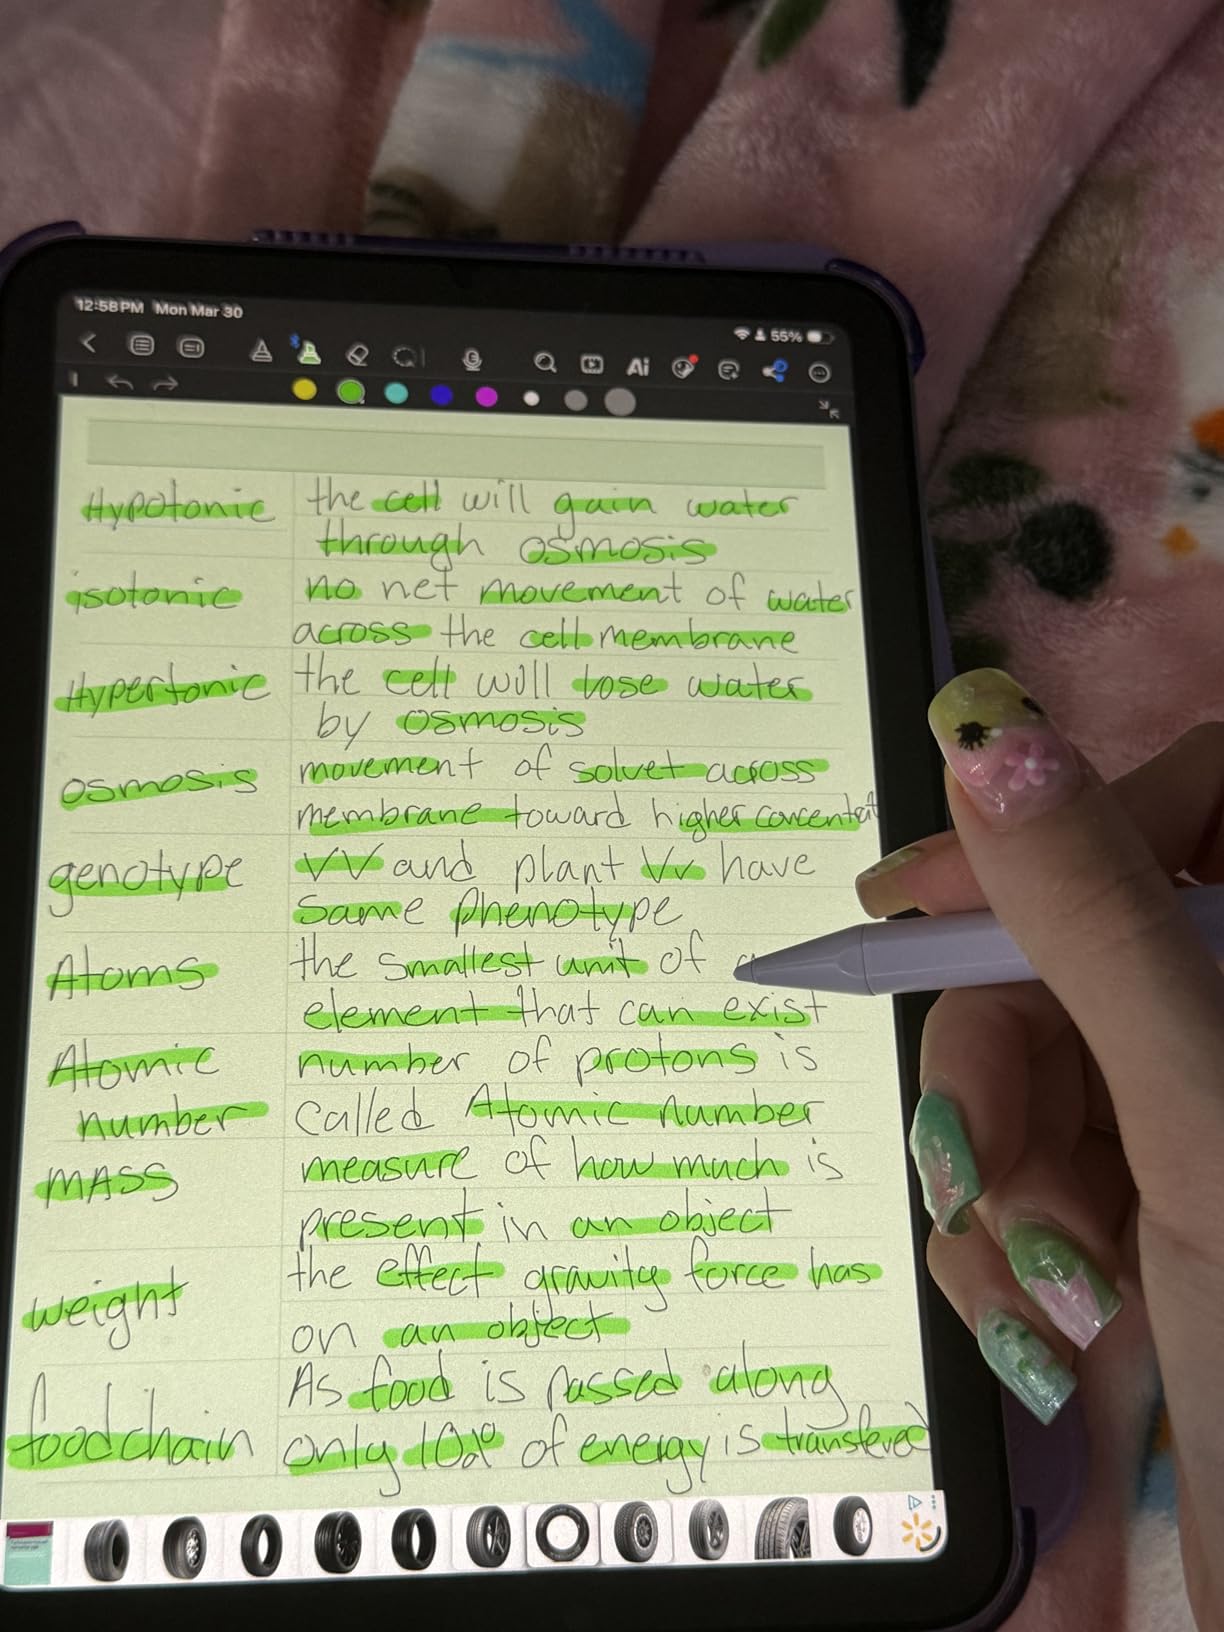 12:58 PM Mon Mar 30
55%
Ai
Hypotonic the cell will gain water
through osmosis
isotonic no net movement of water
across the cell membrane
Hypertonic the cell will lose water
by osmosis
osmosis movement of solvet across
membrane toward higher concentrat
genotype VV and plant Vv have
same phenotype
Atoms the smallest unit of
element that can exist
Atomic number of protons is
number called Atomic number
MASS measure of how much is
present in an object
weight the effect gravity force has
on an object
As food is passed along
foodchain only 10% of energy is transfered